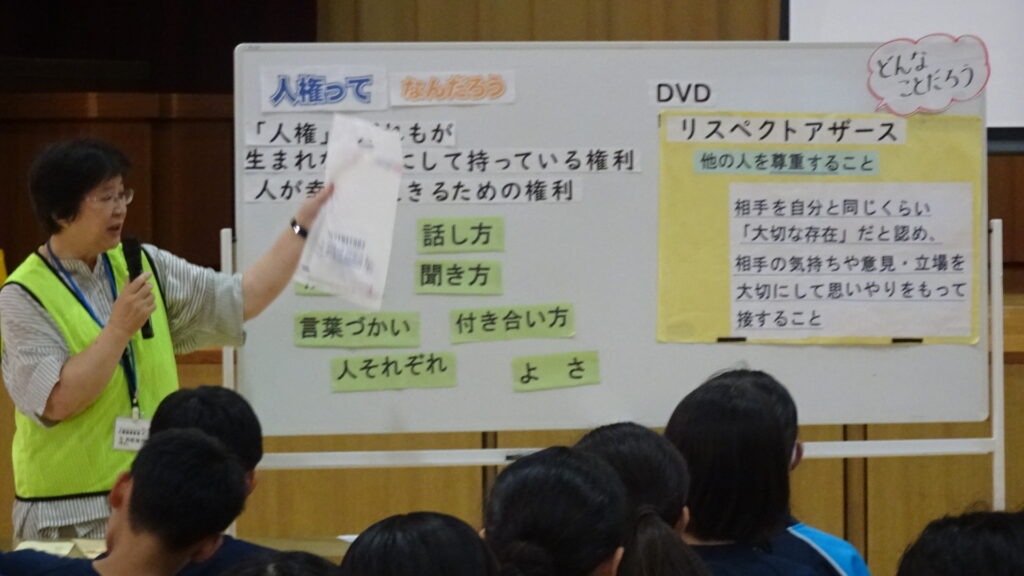 人権って なんだろう
「人権」 れもが
生まれな にして持っている権利
人が幸 きるための権利
話し方
聞き方
言葉づかい
付き合い方
人それぞれ
よさ
DVD
どんな
ことだろう
リスペクトアザース
他の人を尊重すること
相手を自分と同じくらい
「大切な存在」だと認め、
相手の気持ちや意見・立場を
大切にして思いやりをもって
接すること